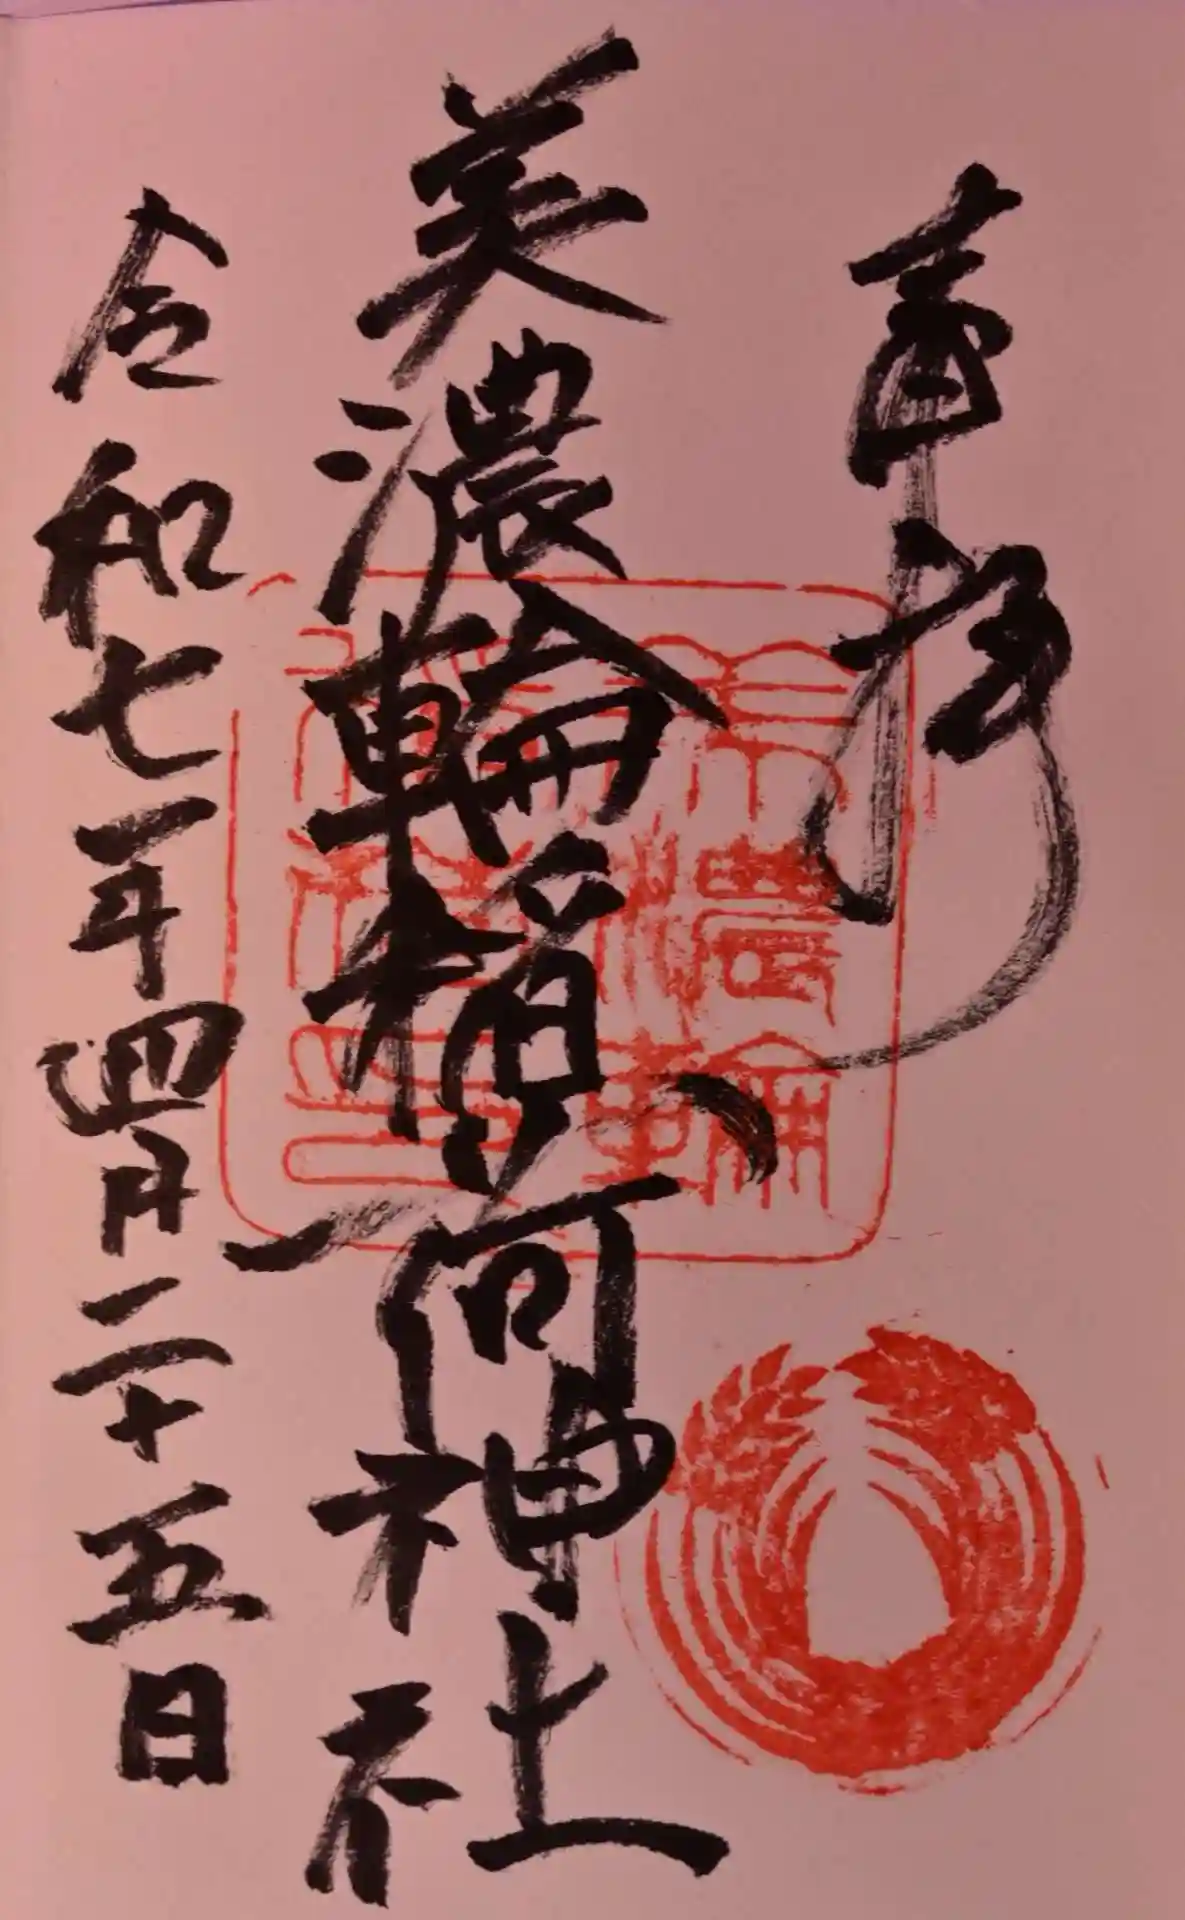 奉拝
美濃輪稲荷神社
令和七年四月二十五日
美濃輪